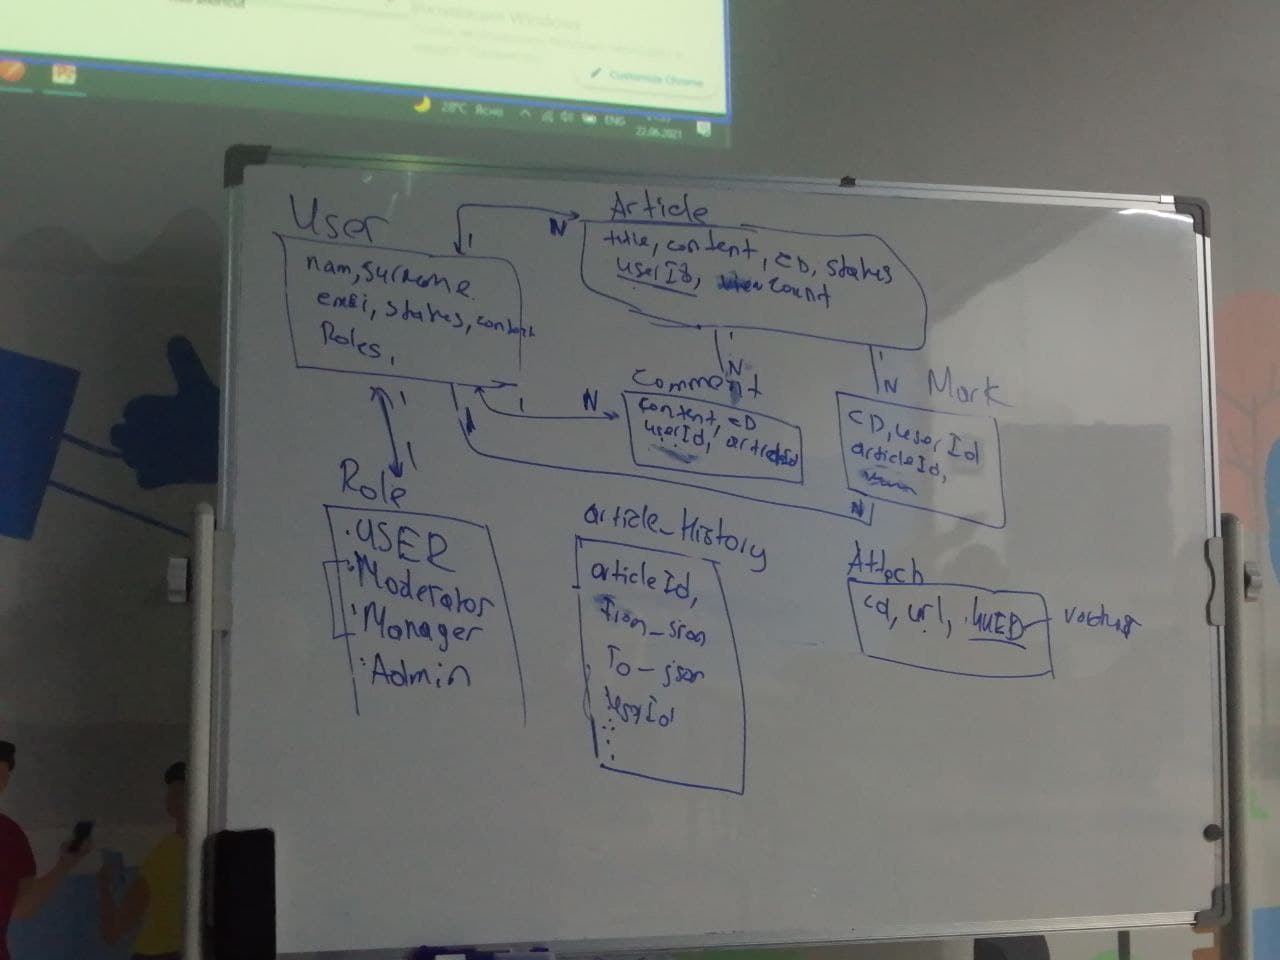 Customize Chrome
28°C Ясно
ENG
22.06.2021
User
nam, surname
emai, status, contact
Roles,
1
N
Article
title, content, CD, status
userId, view count
1
N
1
N
Comment
content, CD
userId, articleId
Mark
CD, userId
articleId,
1
N
1
N
1
1
Role
USER
Moderator
Manager
Admin
article_History
articleId,
From_json
To_json
userId
Attach
cd, url,